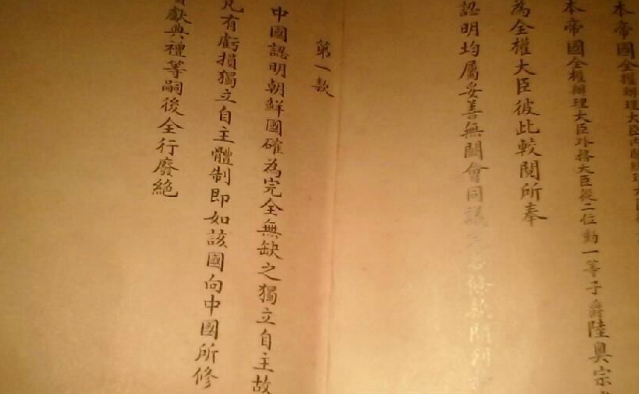 本帝國全權辦理大臣內閣總理
本帝國全權辦理大臣外務大臣從二位勳一等子爵陸奧宗
為全權大臣彼此較閱所奉
認明均屬妥善無闕會同議
條款開列
第一款
中國認明朝鮮國確為完全無缺之獨立自主故
凡有虧損獨立自主體制即如該國向中國所修
獻典禮等嗣後全行廢絕